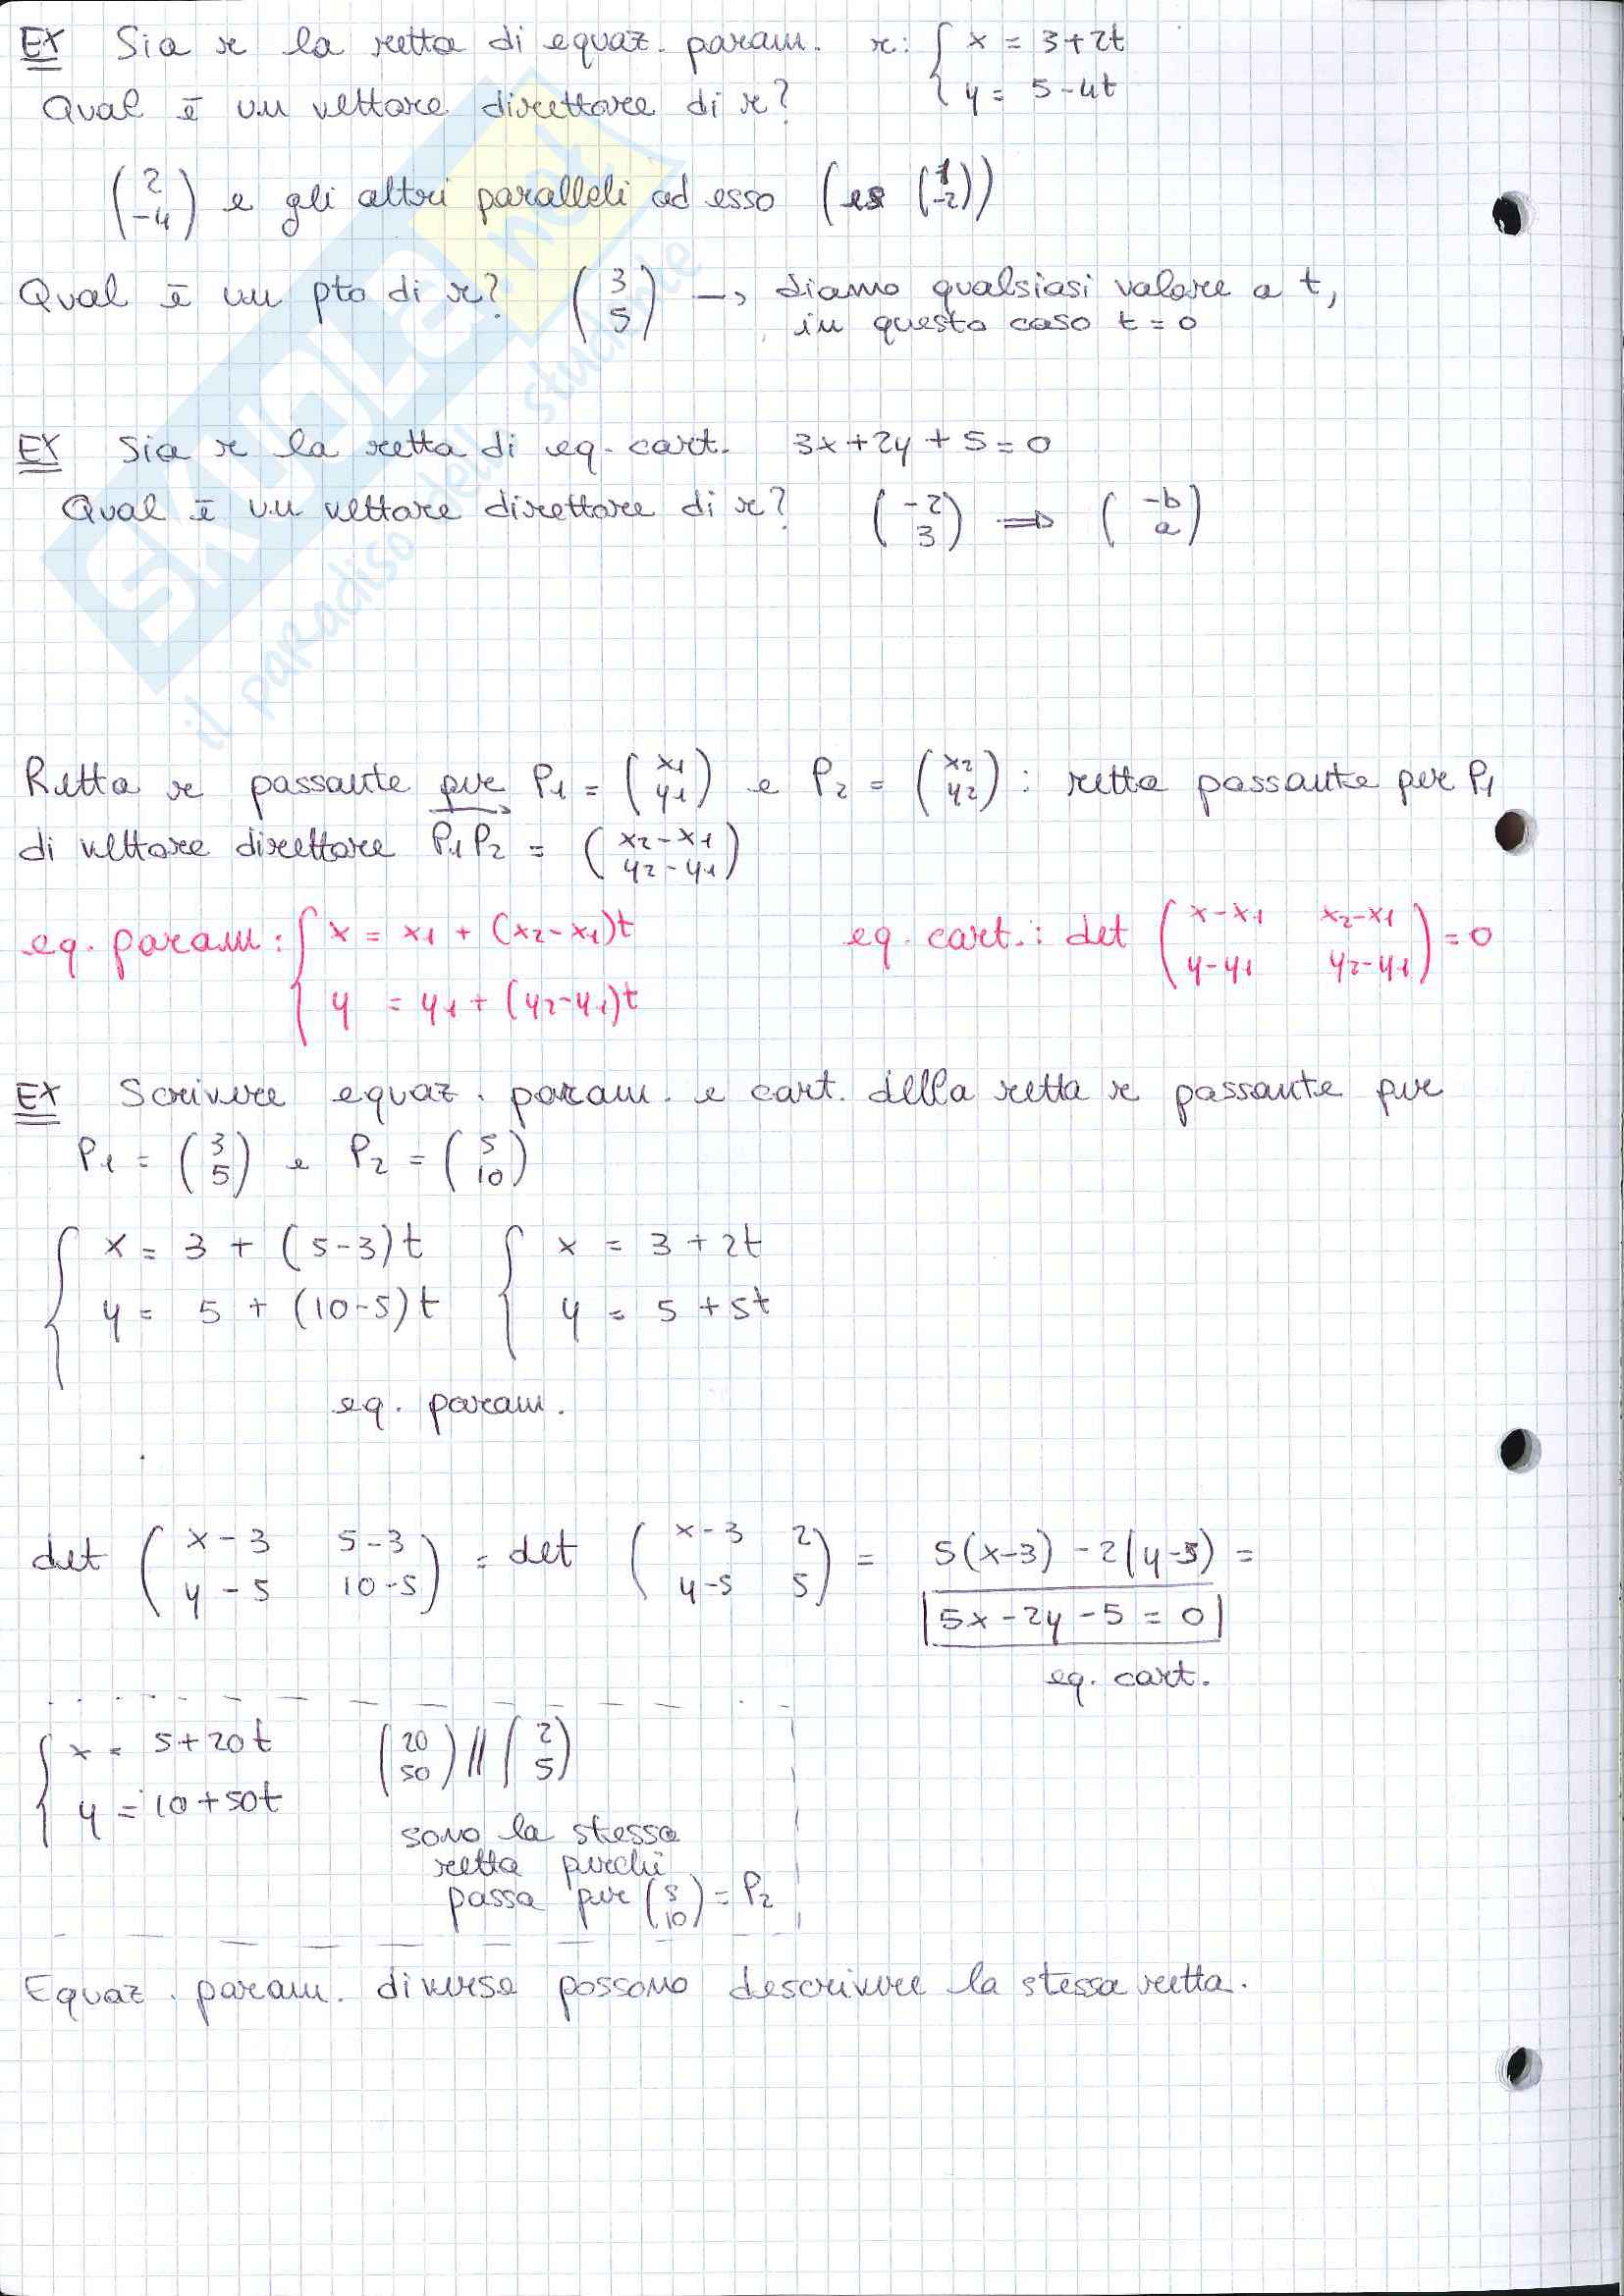 EX Sia r la retta di equaz. param. r: { x = 3+2t
y = 5-4t
Qual è un vettore direttore di r?
(2 -4) e gli altri paralleli ad esso (es (1 -2))
Qual è un pto di r? (3 5) → diamo qualsiasi valore a t,
in questo caso t = 0
EX Sia r la retta di eq. cart. 3x+2y+5=0
Qual è un vettore direttore di r? (-2 3) ⇒ (-b a)
SKUOLA.net
il paradiso dello studente
Retta r passante per P1 = (x1 y1) e P2 = (x2 y2) : retta passante per P1
di vettore direttore P1P2 = (x2-x1 y2-y1)
eq. param: { x = x1 + (x2-x1)t
y = y1 + (y2-y1)t
eq. cart.: det (x-x1 x2-x1 y-y1 y2-y1) = 0
EX Scrivere equaz. param. e cart. della retta r passante per
P1 = (3 5) e P2 = (5 10)
{ x = 3 + (5-3)t { x = 3+2t
y = 5 + (10-5)t y = 5+5t
eq. param.
det (x-3 5-3 y-5 10-5) = det (x-3 2 y-5 5) = 5(x-3) -2(y-5) =
5x-2y-5 = 0
eq. cart.
{ x = 5+20t (20 50) // (2 5)
y = 10+50t
sono la stessa
retta perchè
passa per (5 10) = P2
Equaz. param. diverse possono descrivere la stessa retta.